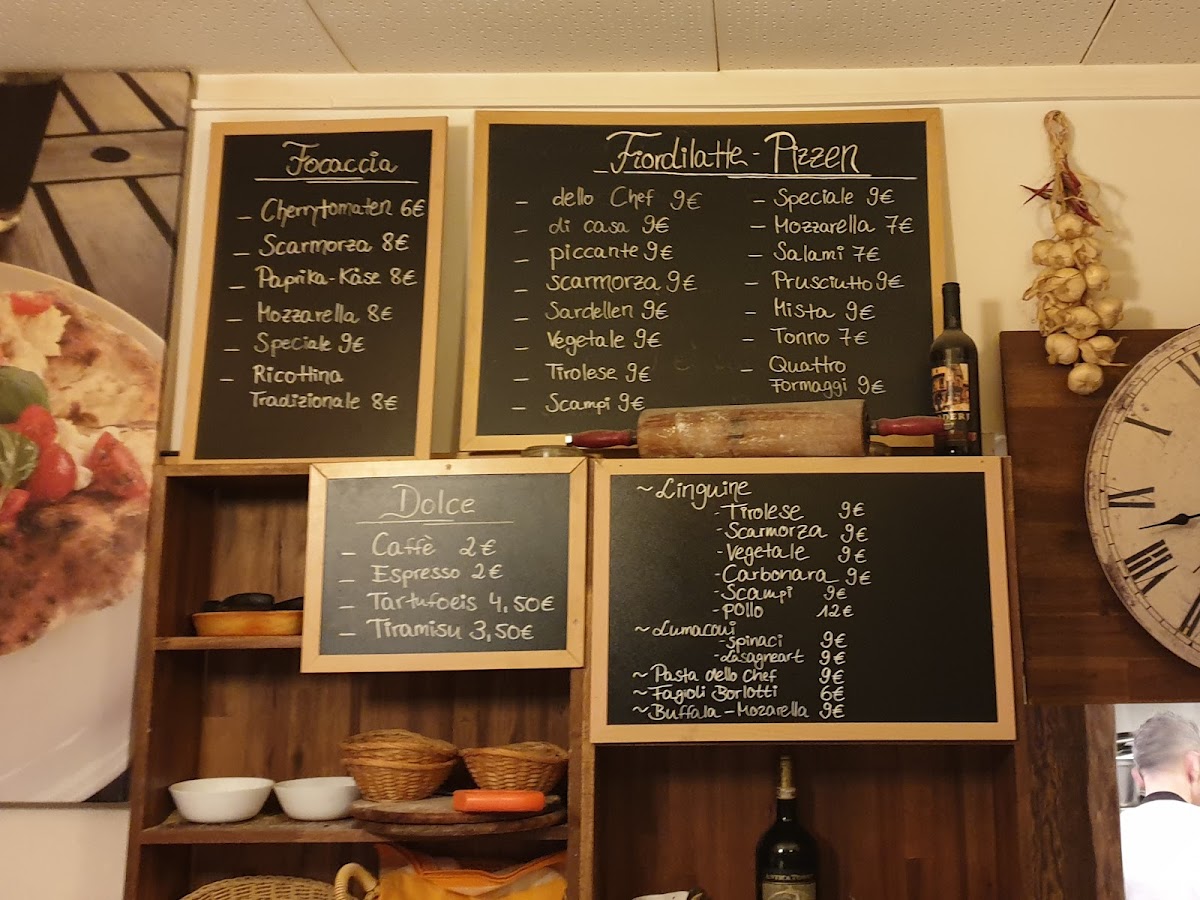 Focaccia
– Cherrytomaten 6€
– Scarmorza 8€
– Paprika-Käse 8€
– Mozzarella 8€
– Speciale 9€
– Ricottina
Tradizionale 8€
Fiordilatte - Pizzen
– dello Chef 9€
– di casa 9€
– piccante 9€
– scarmorza 9€
– Sardellen 9€
– Vegetale 9€
– Tirolese 9€
– Scampi 9€
– Speciale 9€
– Mozzarella 7€
– Salami 7€
– Prusciutto 9€
– Mista 9€
– Tonno 7€
– Quattro
Formaggi 9€
Dolce
– Caffè 2€
– Espresso 2€
– Tartufoeis 4,50€
– Tiramisu 3,50€
~ Linguine
- Tirolese 9€
- Scarmorza 9€
- Vegetale 9€
- Carbonara 9€
- Scampi 9€
- pollo 12€
~ Lumaconi
- Spinaci 9€
- Lasagneart 9€
~ Pasta dello Chef 9€
~ Fagioli Borlotti 6€
~ Buffala - Mozarella 9€